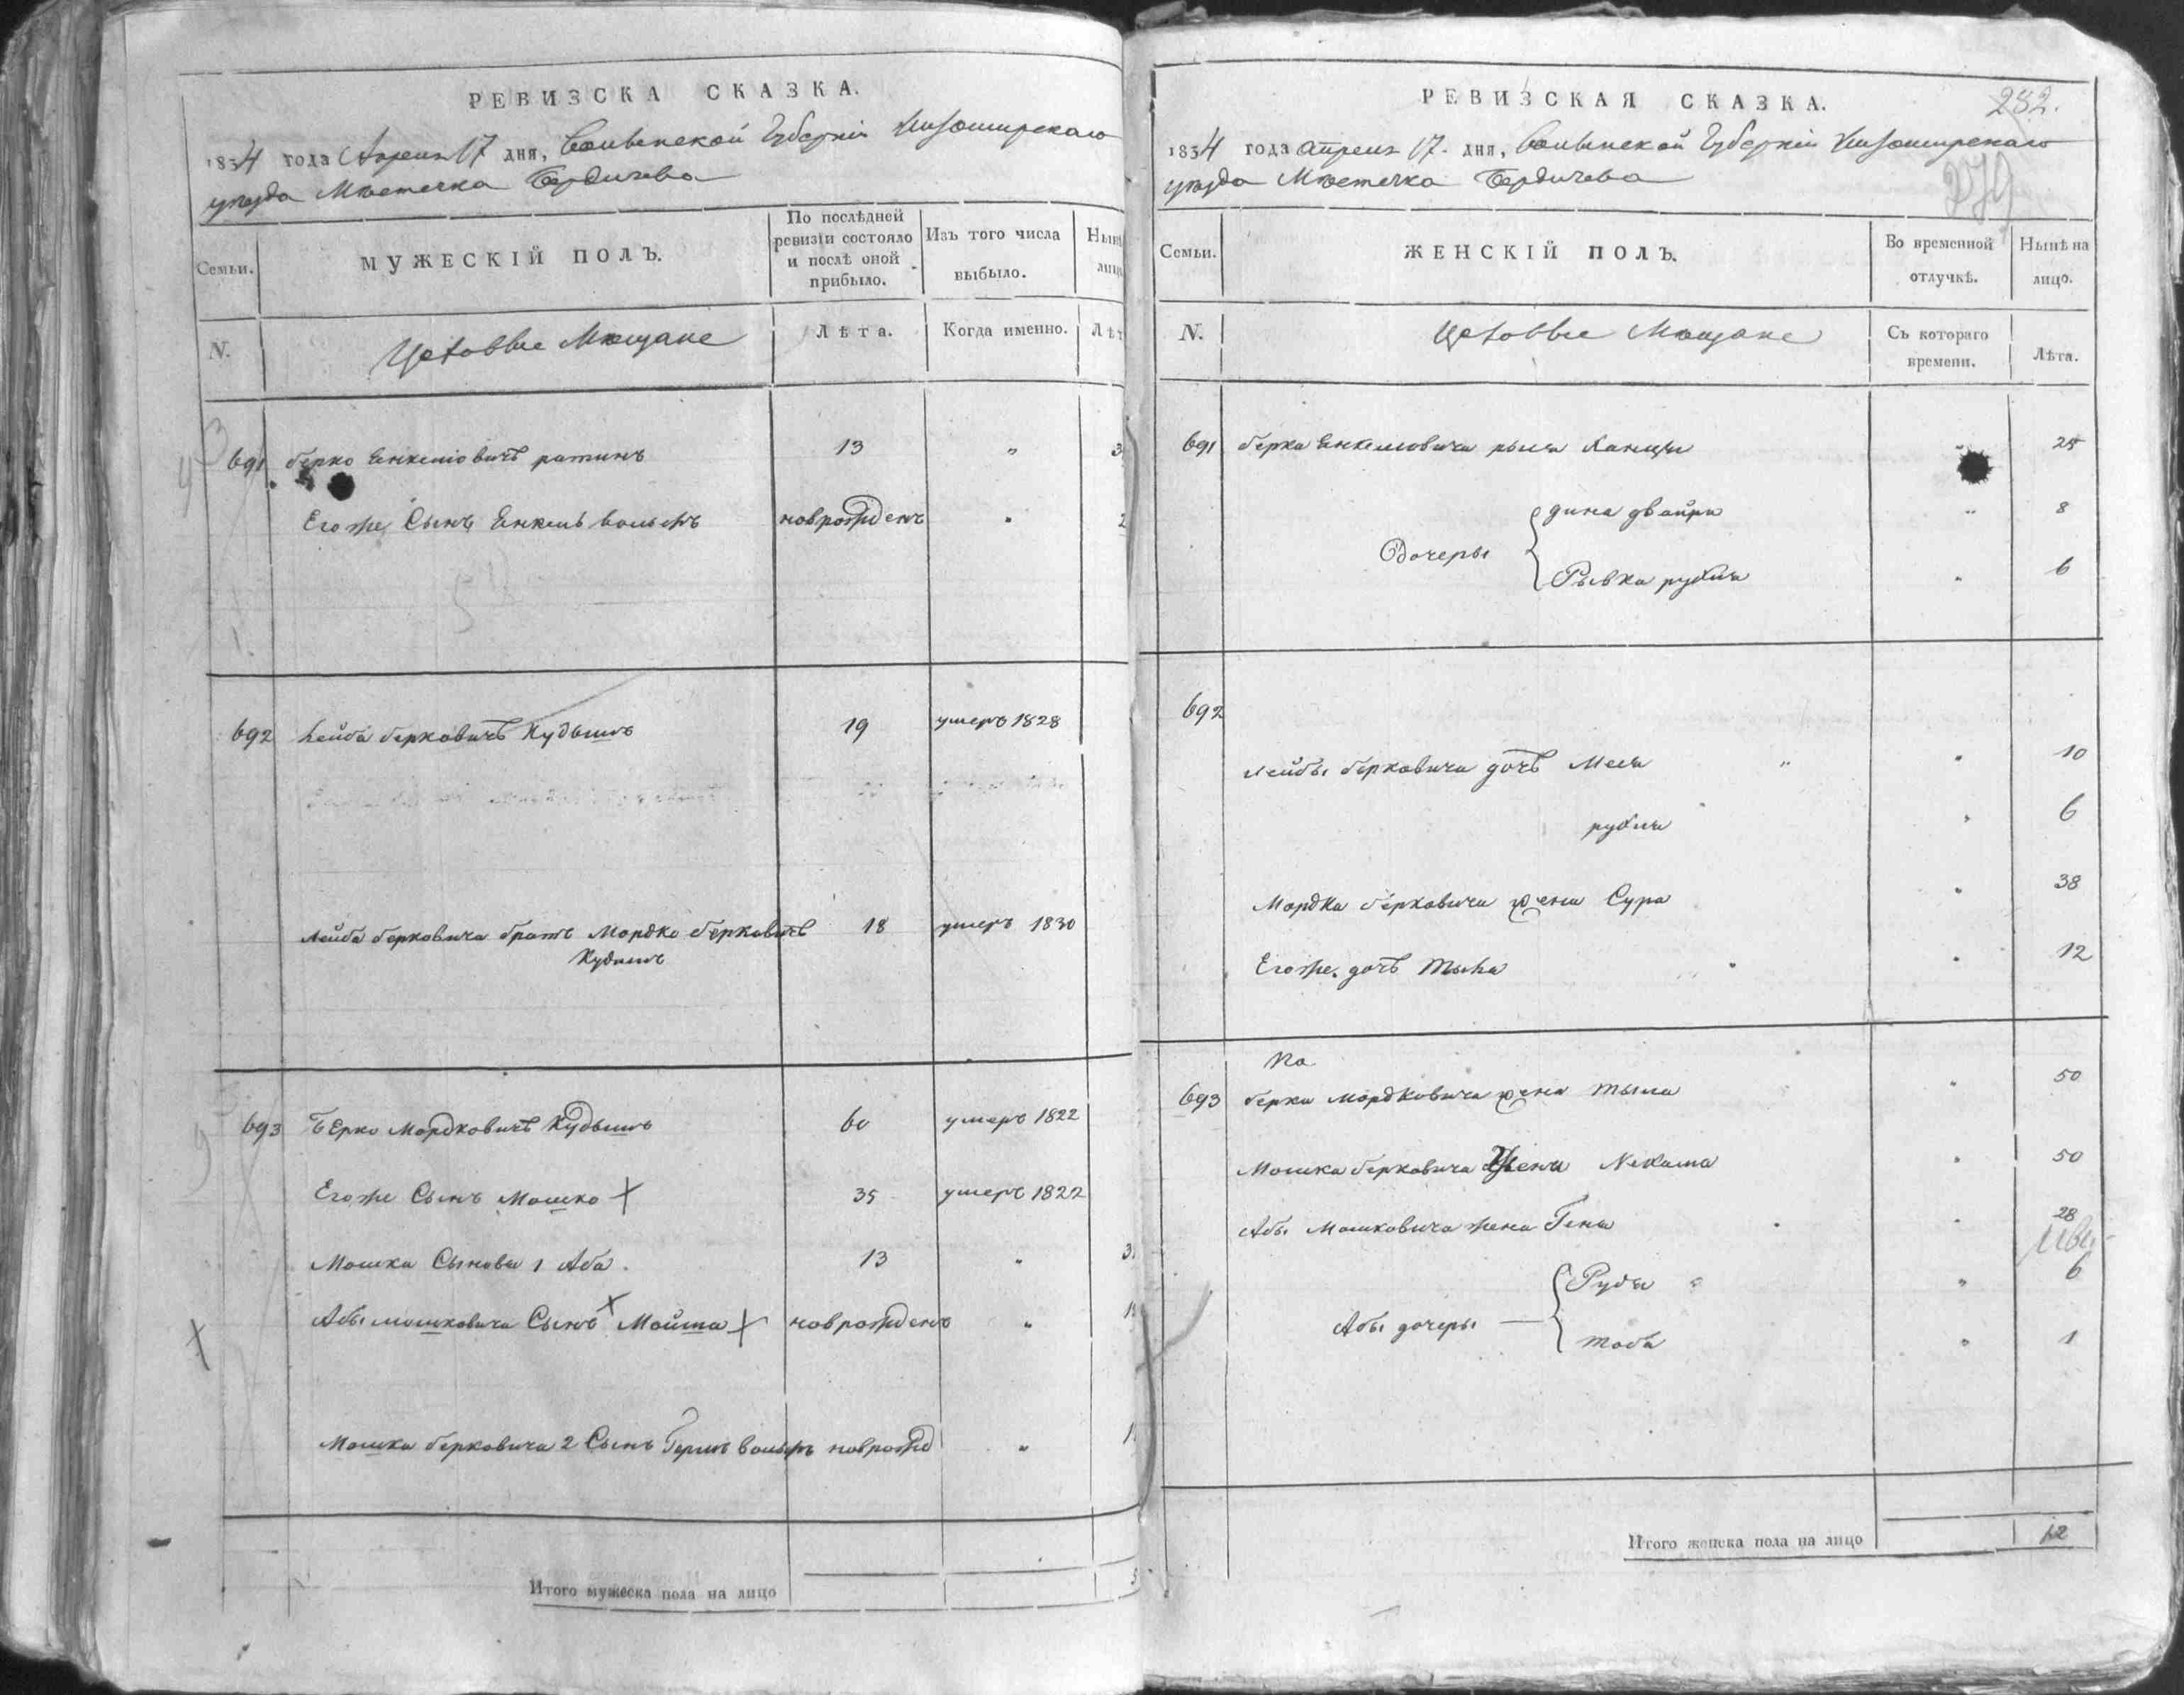 РЕВИЗСКА СКАЗКА.
1834 года Апреля 17 дня, Волынской Губернiи Житомирскаго
уезда Местечка Бердичева
Семьи.
МУЖЕСКIЙ ПОЛЪ.
По послѣдней ревизiи состояло и послѣ оной прибыло.
Изъ того числа выбыло.
N.
Цеховые Мещане
Лѣта.
Когда именно.
691 берко Енкелiовичъ ратинъ 13 „
Егоже Сынъ Енкель вольфъ новрожденъ „
692 Лейба берковичъ Кудышъ 19 умеръ 1828
Лейба берковича братъ Мордко берковичъ 18 умеръ 1830
Кудышъ
693 бЕрко Мордковичъ Кудышъ 60 умеръ 1822
Егоже Сынъ Мошко 35 умеръ 1822
Мошка Сыновья 1 Аба 13 „
Абы мошковича Сынъ новрожденъ „
Мошка берковича 2 Сынъ Гершъ вольфъ новрожд „
Итого мужеска пола на лицо
РЕВИЗСКАЯ СКАЗКА.
282.
1834 года апреля 17. дня, Волынской Губернiи Житомирскаго
279
уезда Местечка Бердичева
Семьи.
ЖЕНСКIЙ ПОЛЪ.
Во временной отлучкѣ.
Нынѣ на лицо.
N.
Цеховые Мещане
Съ котораго времени.
Лѣта.
691 берка Енкелиовича жена 25
дина двойра „ 8
Дочеры
Рывка рухля „ 6
692
Лейбы берковича дочь „ „ 10
рухля „ 6
Мордка берковича жена Сура „ 38
Егоже дочь „ 12
693 берки Мордковича жена тыла „ 50
Мошка берковича жена Нехама „ 50
Абы Мошковича жена Геня „ 28
Рудя „ 6
Абы дочеры —
тоба „ 1
Итого женска пола на лицо 12